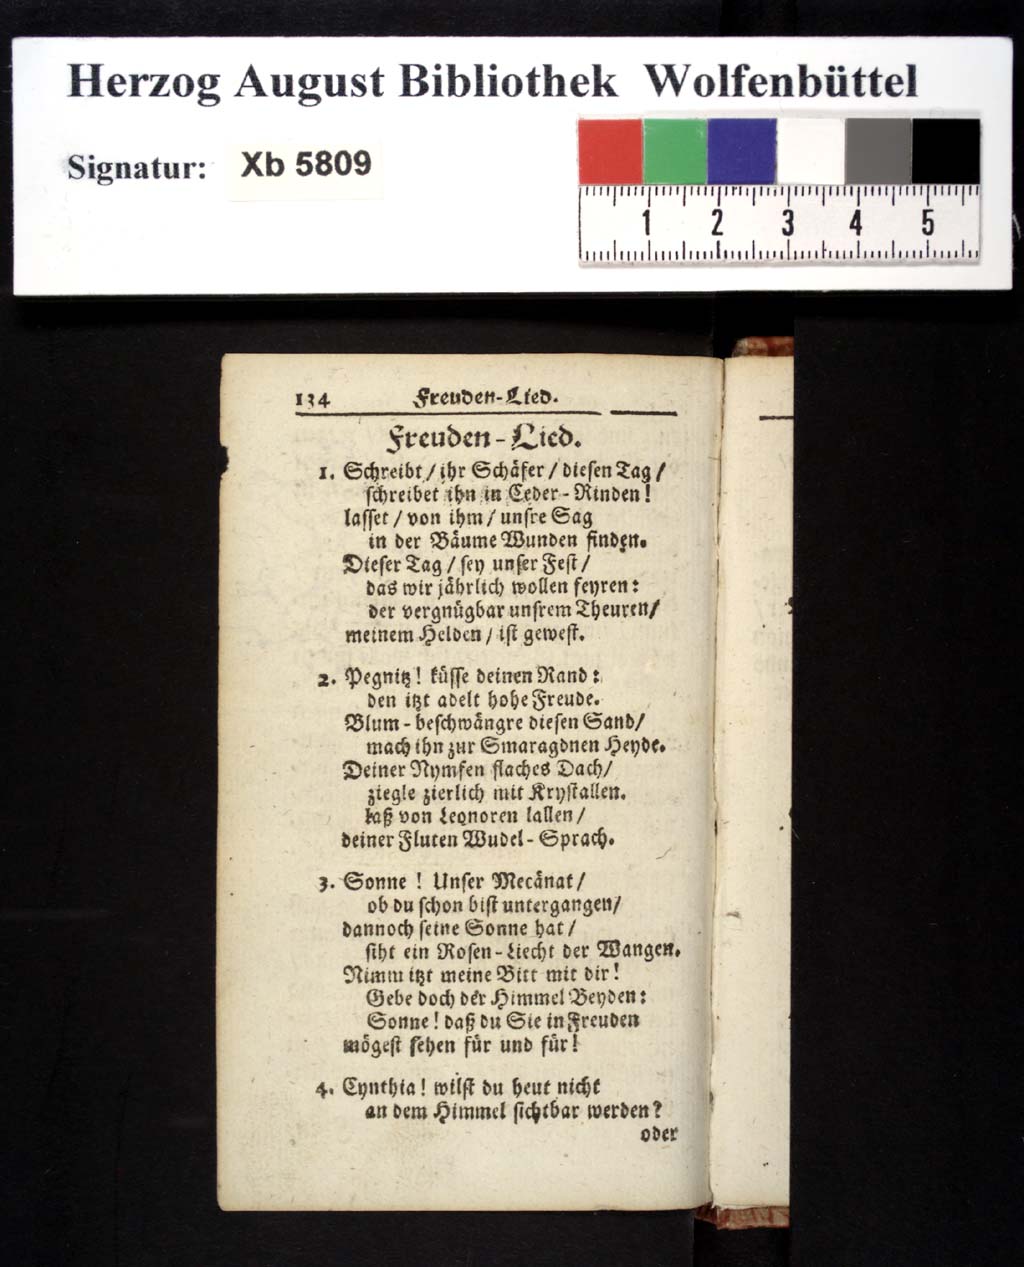 Herzog August Bibliothek Wolfenbüttel
Signatur: Xb 5809
1 2 3 4 5
134 Freuden-Lied.
Freuden-Lied.
1. Schreibt / ihr Schäfer / diesen Tag /
schreibet ihn in Ceder-Rinden!
lasset / von ihm / unsre Sag
in der Bäume Wunden finden.
Dieser Tag / sey unser Fest /
das wir jährlich wollen feyren:
der vergnügbar unsrem Theuren /
meinem Helden / ist gewest.
2. Pegnitz! küsse deinen Rand:
den itzt adelt hohe Freude.
Blum-beschwängre diesen Sand /
mach ihn zur Smaragdnen Heyde.
Deiner Nymfen flaches Dach /
ziegle zierlich mit Krystallen.
laß von Leonoren lallen /
deiner Fluten Wudel-Sprach.
3. Sonne! Unser Mecänat /
ob du schon bist untergangen /
dannoch seine Sonne hat /
siht ein Rosen-Liecht der Wangen.
Nimm itzt meine Bitt mit dir!
Gebe doch der Himmel Beyden:
Sonne! daß du Sie in Freuden
mögest sehen für und für!
4. Cynthia! wilst du heut nicht
an dem Himmel sichtbar werden?
oder